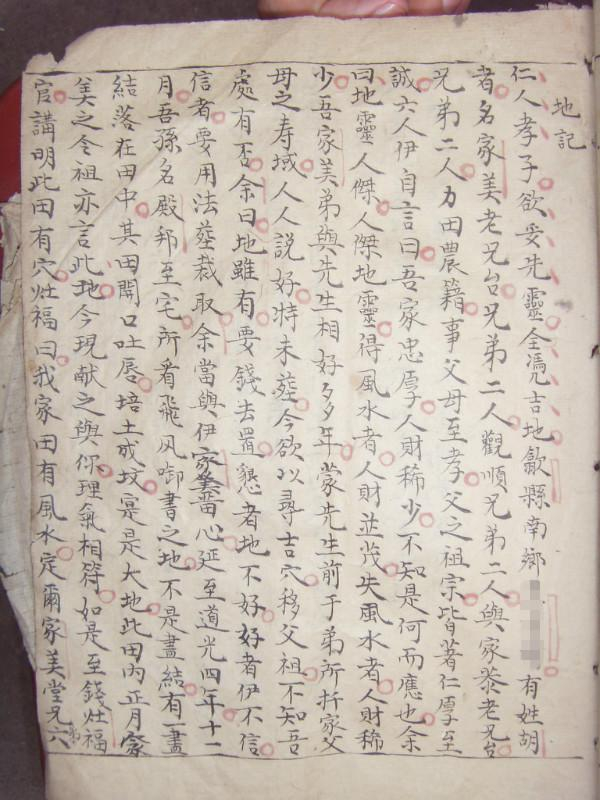 地記
仁人孝子欲妥先靈全憑吉地歙縣南鄉有姓胡
者名家美老兄台兄弟二人觀順兄弟二人與家泰老兄台
兄弟二人力田農籍事父母至孝父之祖宗皆著仁厚至
誠六人伊自言曰吾家忠厚人財稀少不知是何而應也余
曰地靈人傑人傑地靈得風水者人財並茂失風水者人財稀
少吾家美弟與先生相好多年蒙先生前于弟所扦家父
母之寿域人人説好特未塟今欲以尋吉穴移父祖不知吾
處有否余曰地雖有要錢去置懇者地不好好者伊不信
信者要用法塟裁取余當與伊家美畨心延至道光四年十二
月吾孫名殿邦至宅所看飛凤啣書之地不是盡結有一盡
結落在田中其田開口吐唇培土成坟寔是大地此田内正月家
美之令祖亦言此地今現献之與你理氣相符如是至錢灶福
官講明此田有穴灶福曰我家田有風水定爾家美堂兄六